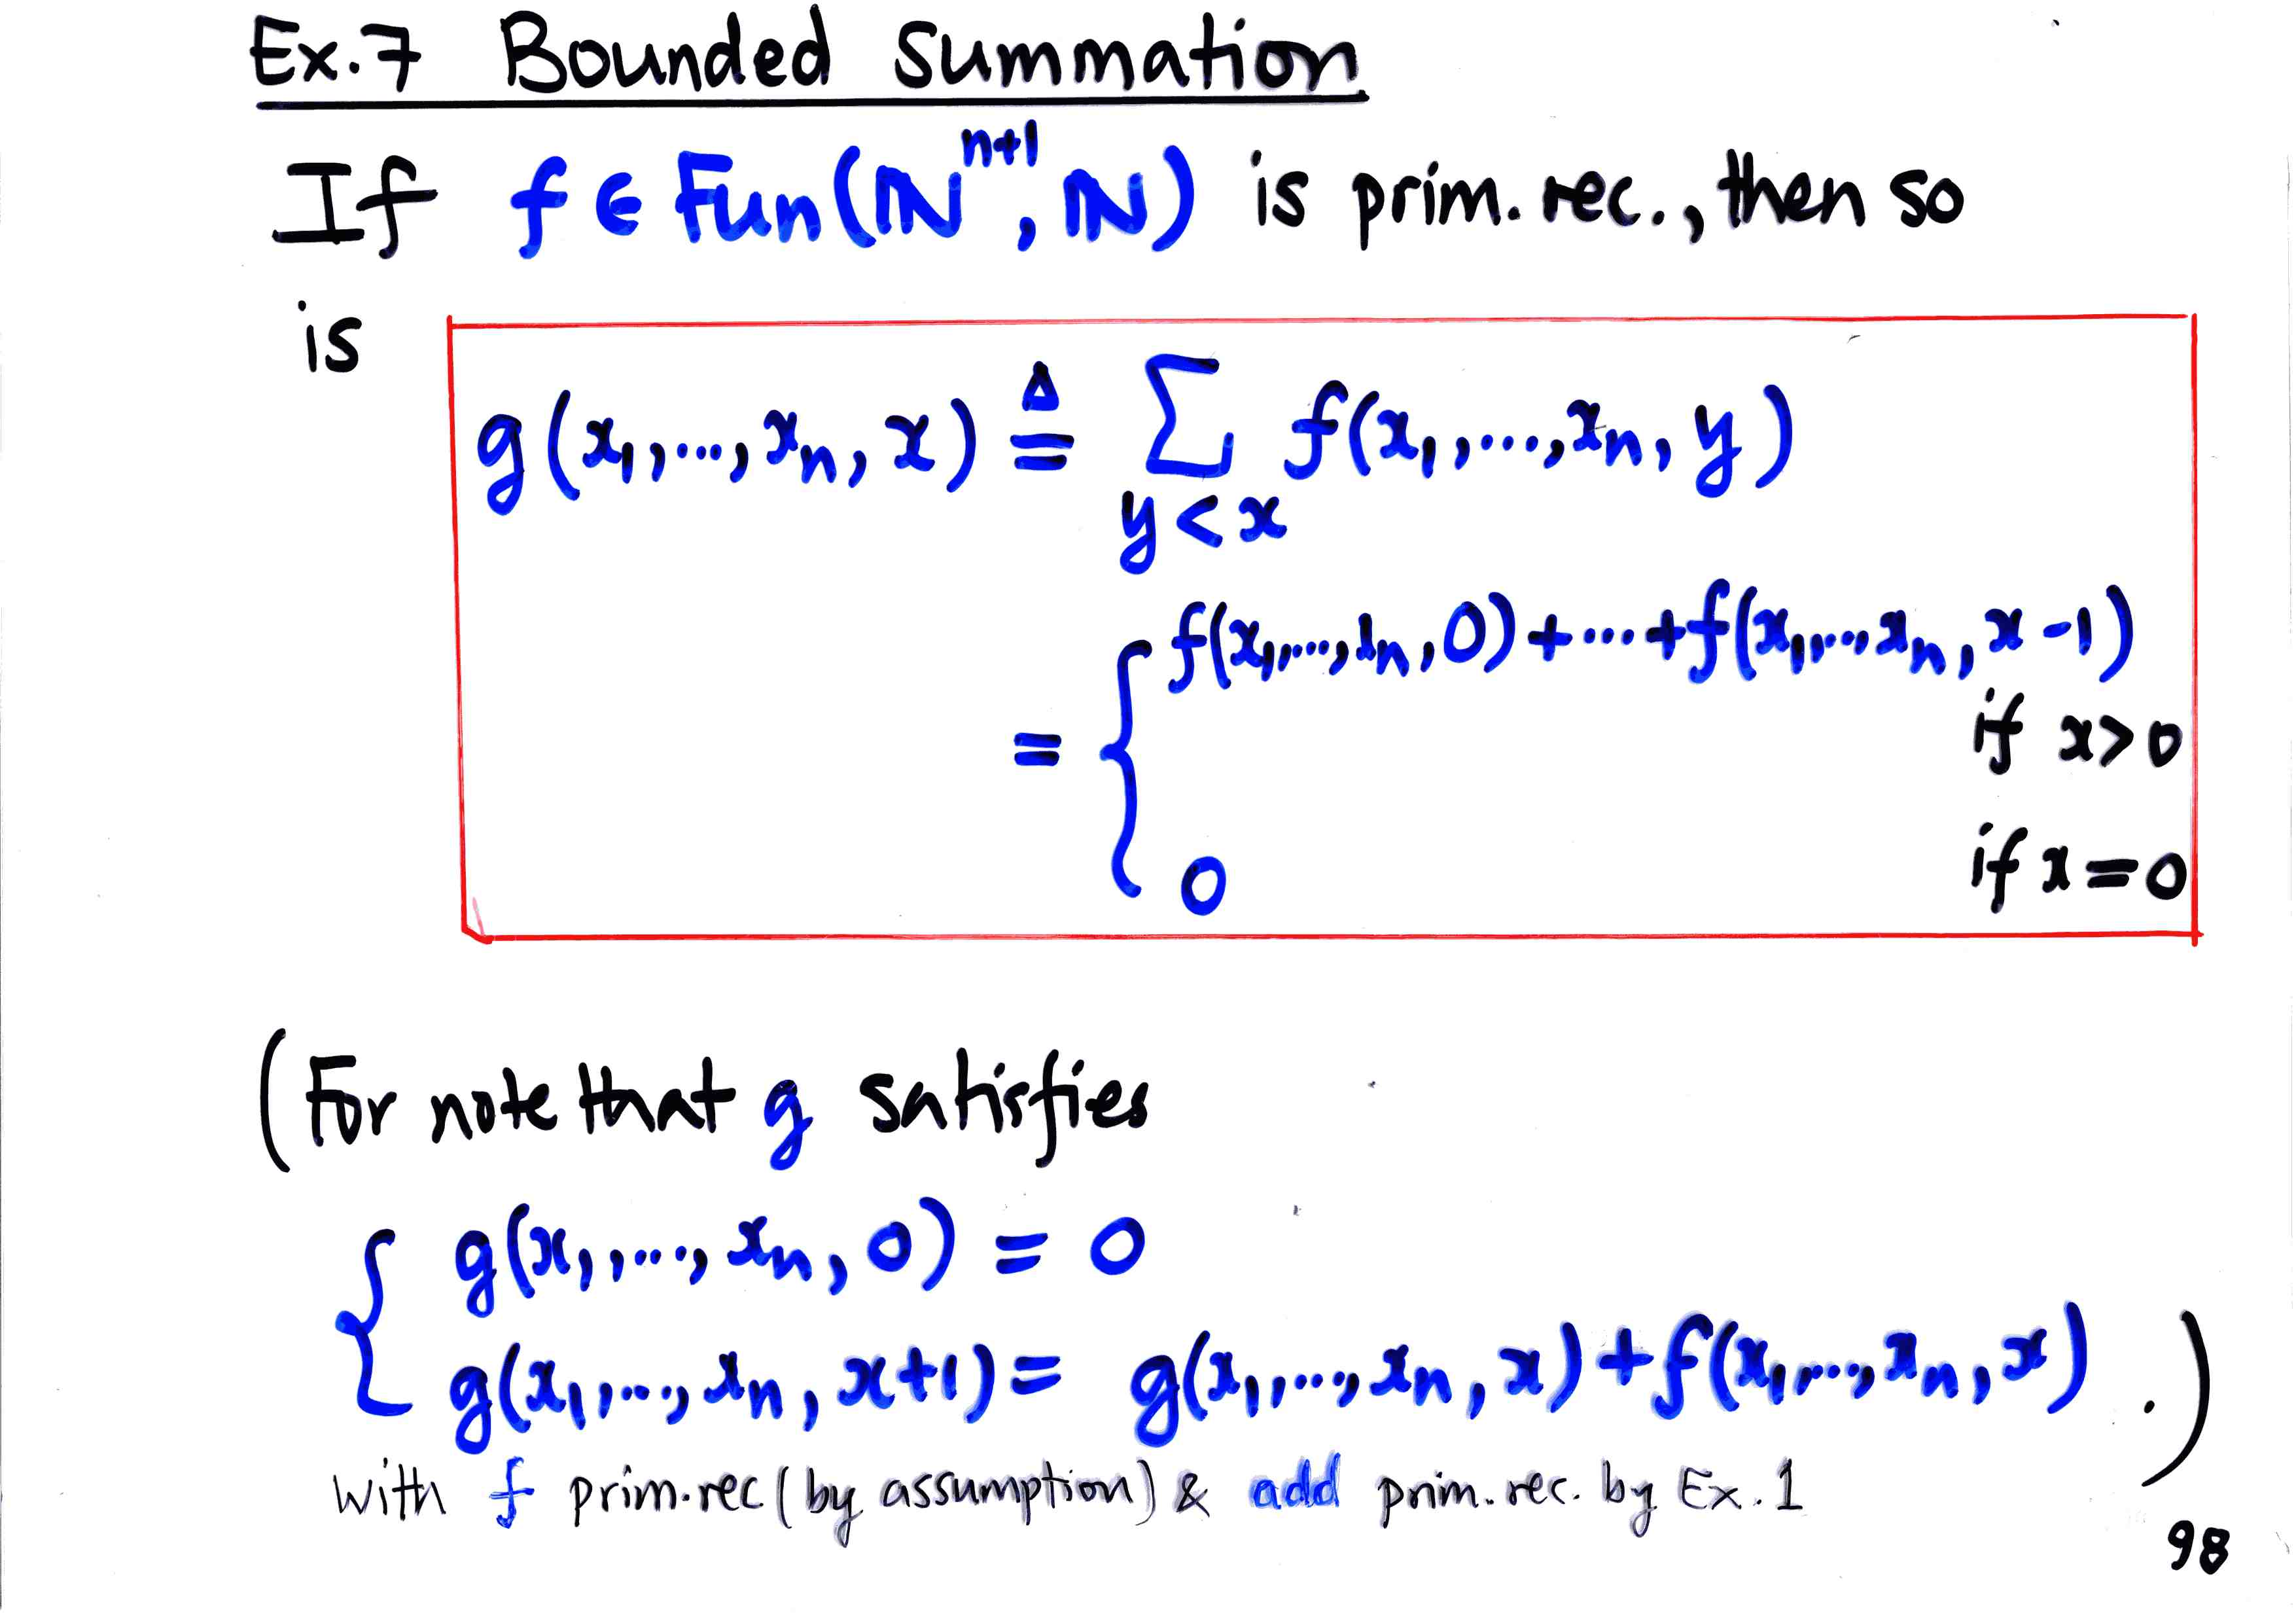 Ex.7 Bounded Summation
If f ∈ Fun(ℕⁿ⁺¹, ℕ) is prim. rec., then so
is
g(x₁,...,xₙ, x) ≜ Σ f(x₁,...,xₙ, y)
y < x
= { f(x₁,...,xₙ, 0) + ... + f(x₁,...,xₙ, x-1)
if x > 0
0 if x = 0
(For note that g satisfies
{ g(x₁,...,xₙ, 0) = 0
g(x₁,...,xₙ, x+1) = g(x₁,...,xₙ, x) + f(x₁,...,xₙ, x) .)
with f prim.rec (by assumption) & add prim. rec. by Ex. 1
98